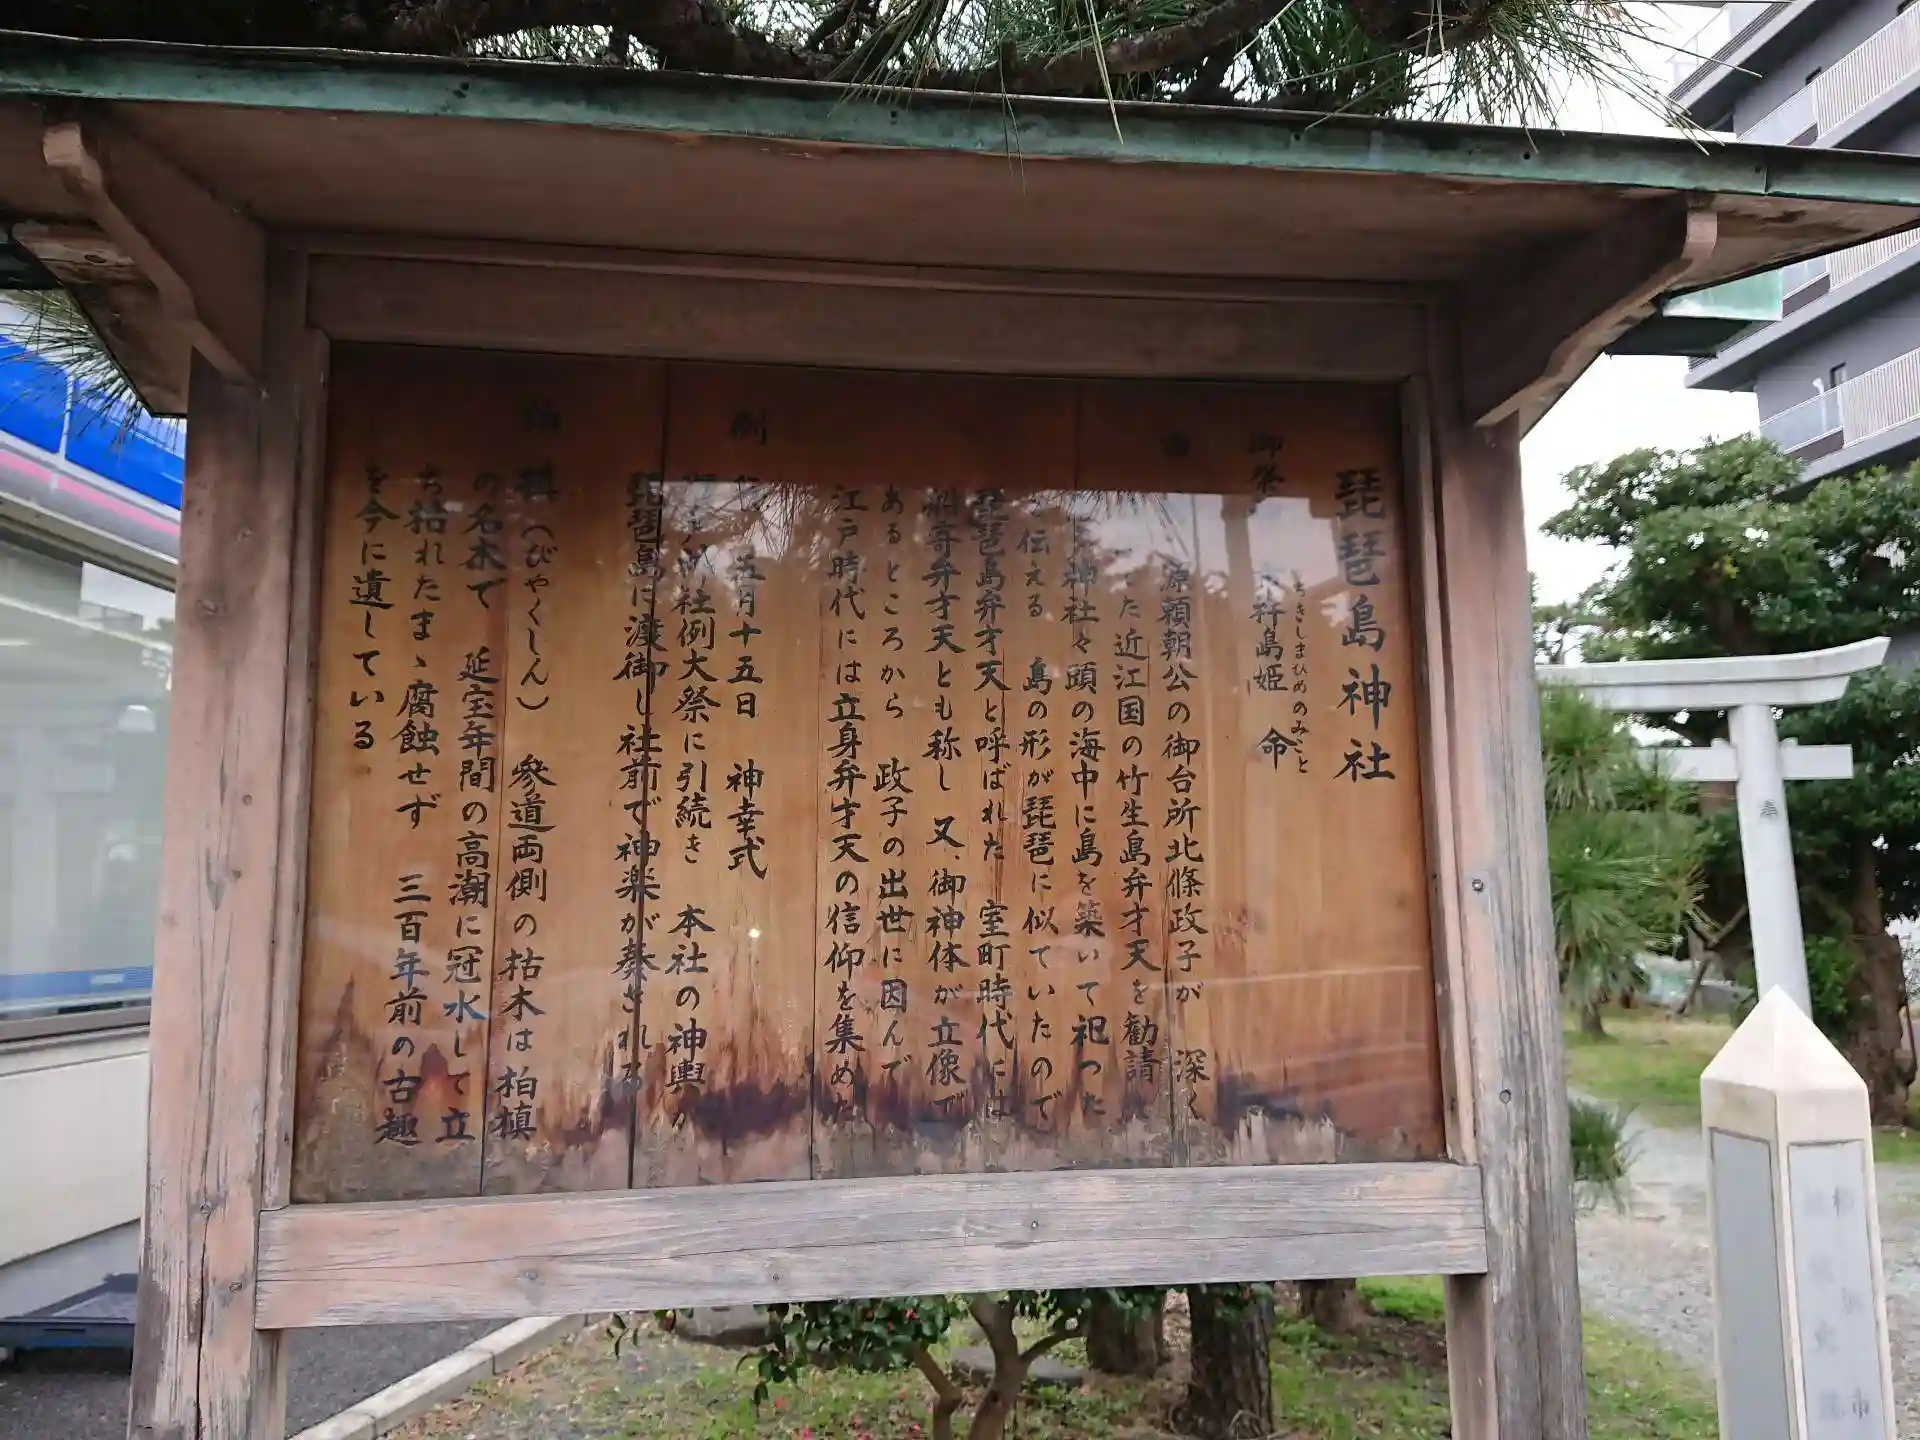 琵琶島神社
御祭 杵島姫 命
ちきしまひめのみこと
由 源頼朝公の御台所北條政子が 深く
た近江国の竹生島弁才天を勧請
神社々頭の海中に島を築いて祀った
伝える 島の形が琵琶に似ていたので
琵琶島弁才天と呼ばれた 室町時代には
舩寄弁才天とも称し 又、御神体が立像で
あるところから 政子の出世に因んで
江戸時代には立身弁才天の信仰を集めた
例 五月十五日 神幸式
社例大祭に引続き 本社の神輿が
琵琶島に渡御し社前で神楽が奏される
柏槙(びやくしん) 参道両側の枯木は柏槙
の名木で 延宝年間の高潮に冠水して立
ち枯れたまゝ腐蝕せず 三百年前の古趣
を今に遺している
奉
市